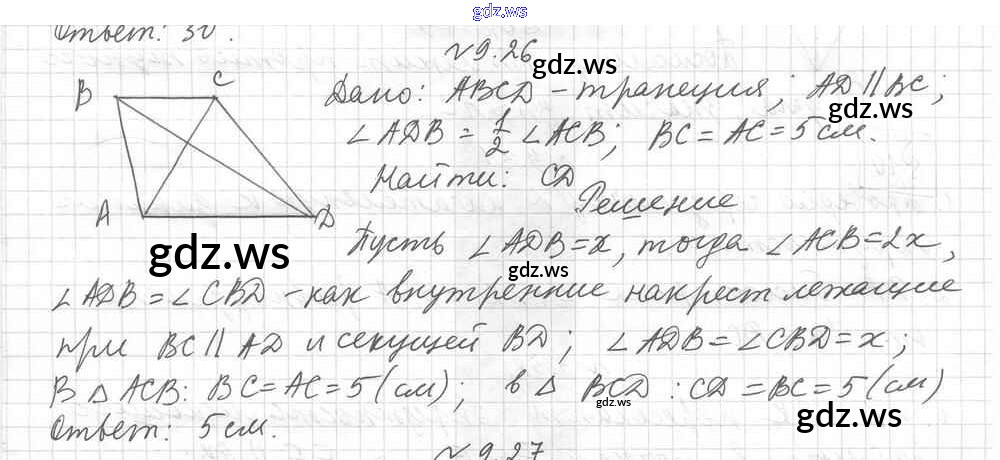 gdz.ws
Ответ: 30°.
№ 9.26
B C
A D
Дано: ABCD - трапеция; AD || BC;
∠ADB = 1/2 ∠ACB; BC = AC = 5 см.
Найти: CD
Решение
Пусть ∠ADB = x, тогда ∠ACB = 2x,
∠ADB = ∠CBD - как внутренние накрест лежащие
при BC || AD и секущей BD; ∠ADB = ∠CBD = x;
В △ ACB: BC = AC = 5 (см); в △ BCD: CD = BC = 5 (см)
Ответ: 5 см.
№ 9.27
gdz.ws
gdz.ws
gdz.ws
gdz.ws
gdz.ws
gdz.ws